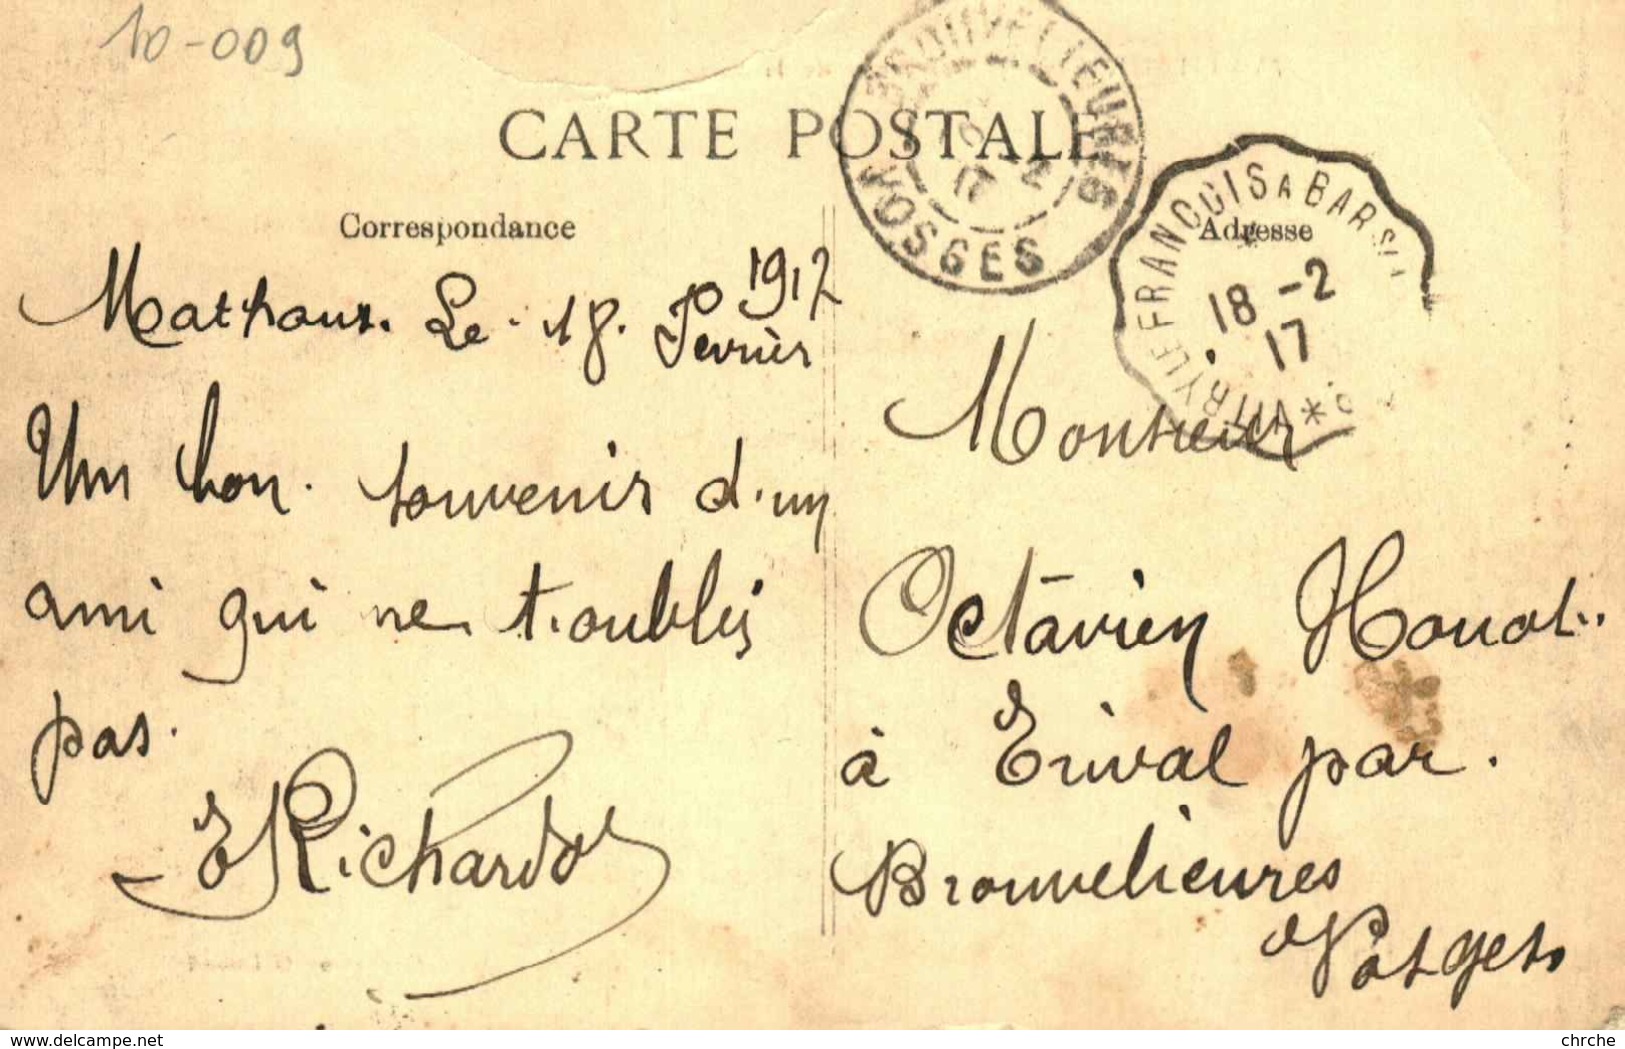 10-009
CARTE POSTALE
BROUVELIEURES
VOSGES
-2
17
Correspondance
Adresse
VITRY LE FRANCOIS A BAR S
18 -2
17
Mathaux. Le 18. Fevrier 1917
Un bon souvenir d'un
ami qui ne t'oublis
pas.
E Richardot
Monsieur
Octavien Houot
à Erival par
Brouvelieures
Vosges
www.delcampe.net
chrche